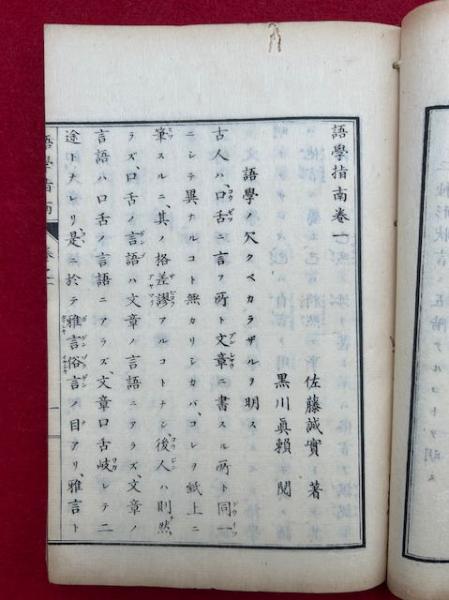 語學指南卷一
佐藤誠實 著
黒川眞頼 閲
語學ノ欠クベカラザルヲ明ス
古人ハ、口舌ニ言フ所ト、文章ニ書スル所ト、同一
ニシテ異ナルコト無カリシカバ、コレヲ紙上ニ
筆スルニ、其ノ格差謬アルコトナシ、後人ハ則然
ラズ、口舌ノ言語ハ文章ノ言語ニアラズ、文章ノ
言語ハ口舌ノ言語ニアラズ、文章口舌岐レテ二
途トナレリ、是ニ於テ雅言俗言ノ目アリ、雅言ト
語學指南